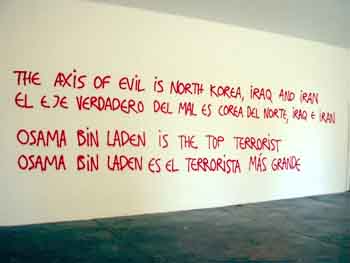 THE AXIS OF EVIL IS NORTH KOREA, IRAQ AND IRAN
EL EJE VERDADERO DEL MAL ES COREA DEL NORTE, IRAQ E IRAN
OSAMA BIN LADEN IS THE TOP TERRORIST
OSAMA BIN LADEN ES EL TERRORISTA MÁS GRANDE